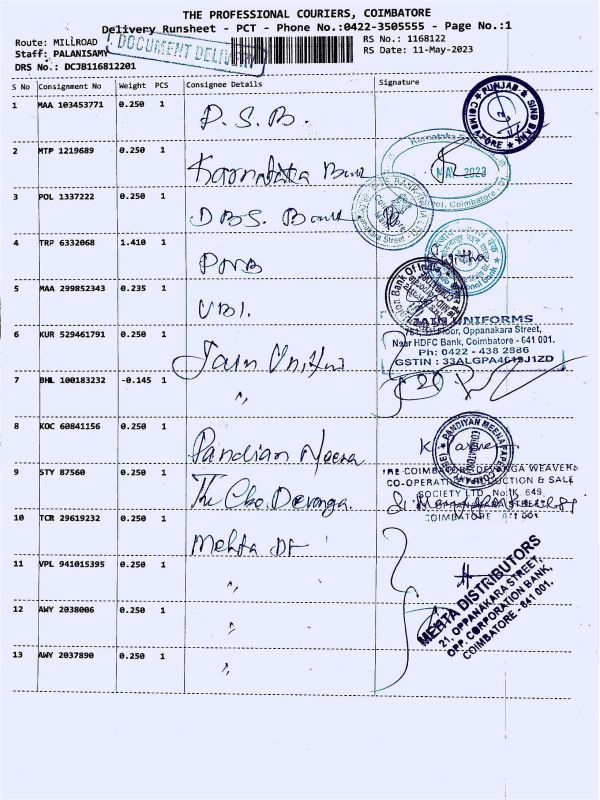 THE PROFESSIONAL COURIERS, COIMBATORE
Delivery Runsheet - PCT - Phone No.:0422-3505555 - Page No.:1
Route: MILLROAD
DOCUMENT DELIVERY
RS No.: 1168122
Staff: PALANISAMY
RS Date: 11-May-2023
DRS No.: DCJB116812201
S No Consignment No Weight PCS Consignee Details Signature
1 MAA 103453771 0.250 1 P.S.B.
PUNJAB & SIND BANK
COIMBATORE
2 MTP 1219689 0.250 1 Karnataka Bank
Karnataka
MAY 2023
Coimbatore
3 POL 1337222 0.250 1 DBS Bank
4 TRP 6332068 1.410 1 PNB
5 MAA 299852343 0.235 1 UBI.
Union Bank Of India
6 KUR 529461791 0.250 1 Jain Uniform
JAIN UNIFORMS
Floor, Oppanakara Street,
Near HDFC Bank, Coimbatore - 641 001.
Ph: 0422 - 438 2886
GSTIN : 33ALGPA4649J1ZD
7 BHL 100183232 -0.145 1 "
8 KOC 60841156 0.250 1 Pandian Meena
PANDIYAN MEENA
9 STY 87560 0.250 1 The Cbe Devanga.
THE COIMBATORE DEVANGA WEAVERS
CO-OPERATIVE PRODUCTION & SALE
SOCIETY LTD., No.K. 649,
OPPANAKARA STREET
COIMBATORE - 641 001
10 TCR 29619232 0.250 1 Mehta Dt
11 VPL 941015395 0.250 1 "
MEHTA DISTRIBUTORS
21, OPPANAKARA STREET,
OPP. CORPORATION BANK,
COIMBATORE - 641 001.
12 AWY 2038006 0.250 1 "
13 AWY 2037890 0.250 1 "